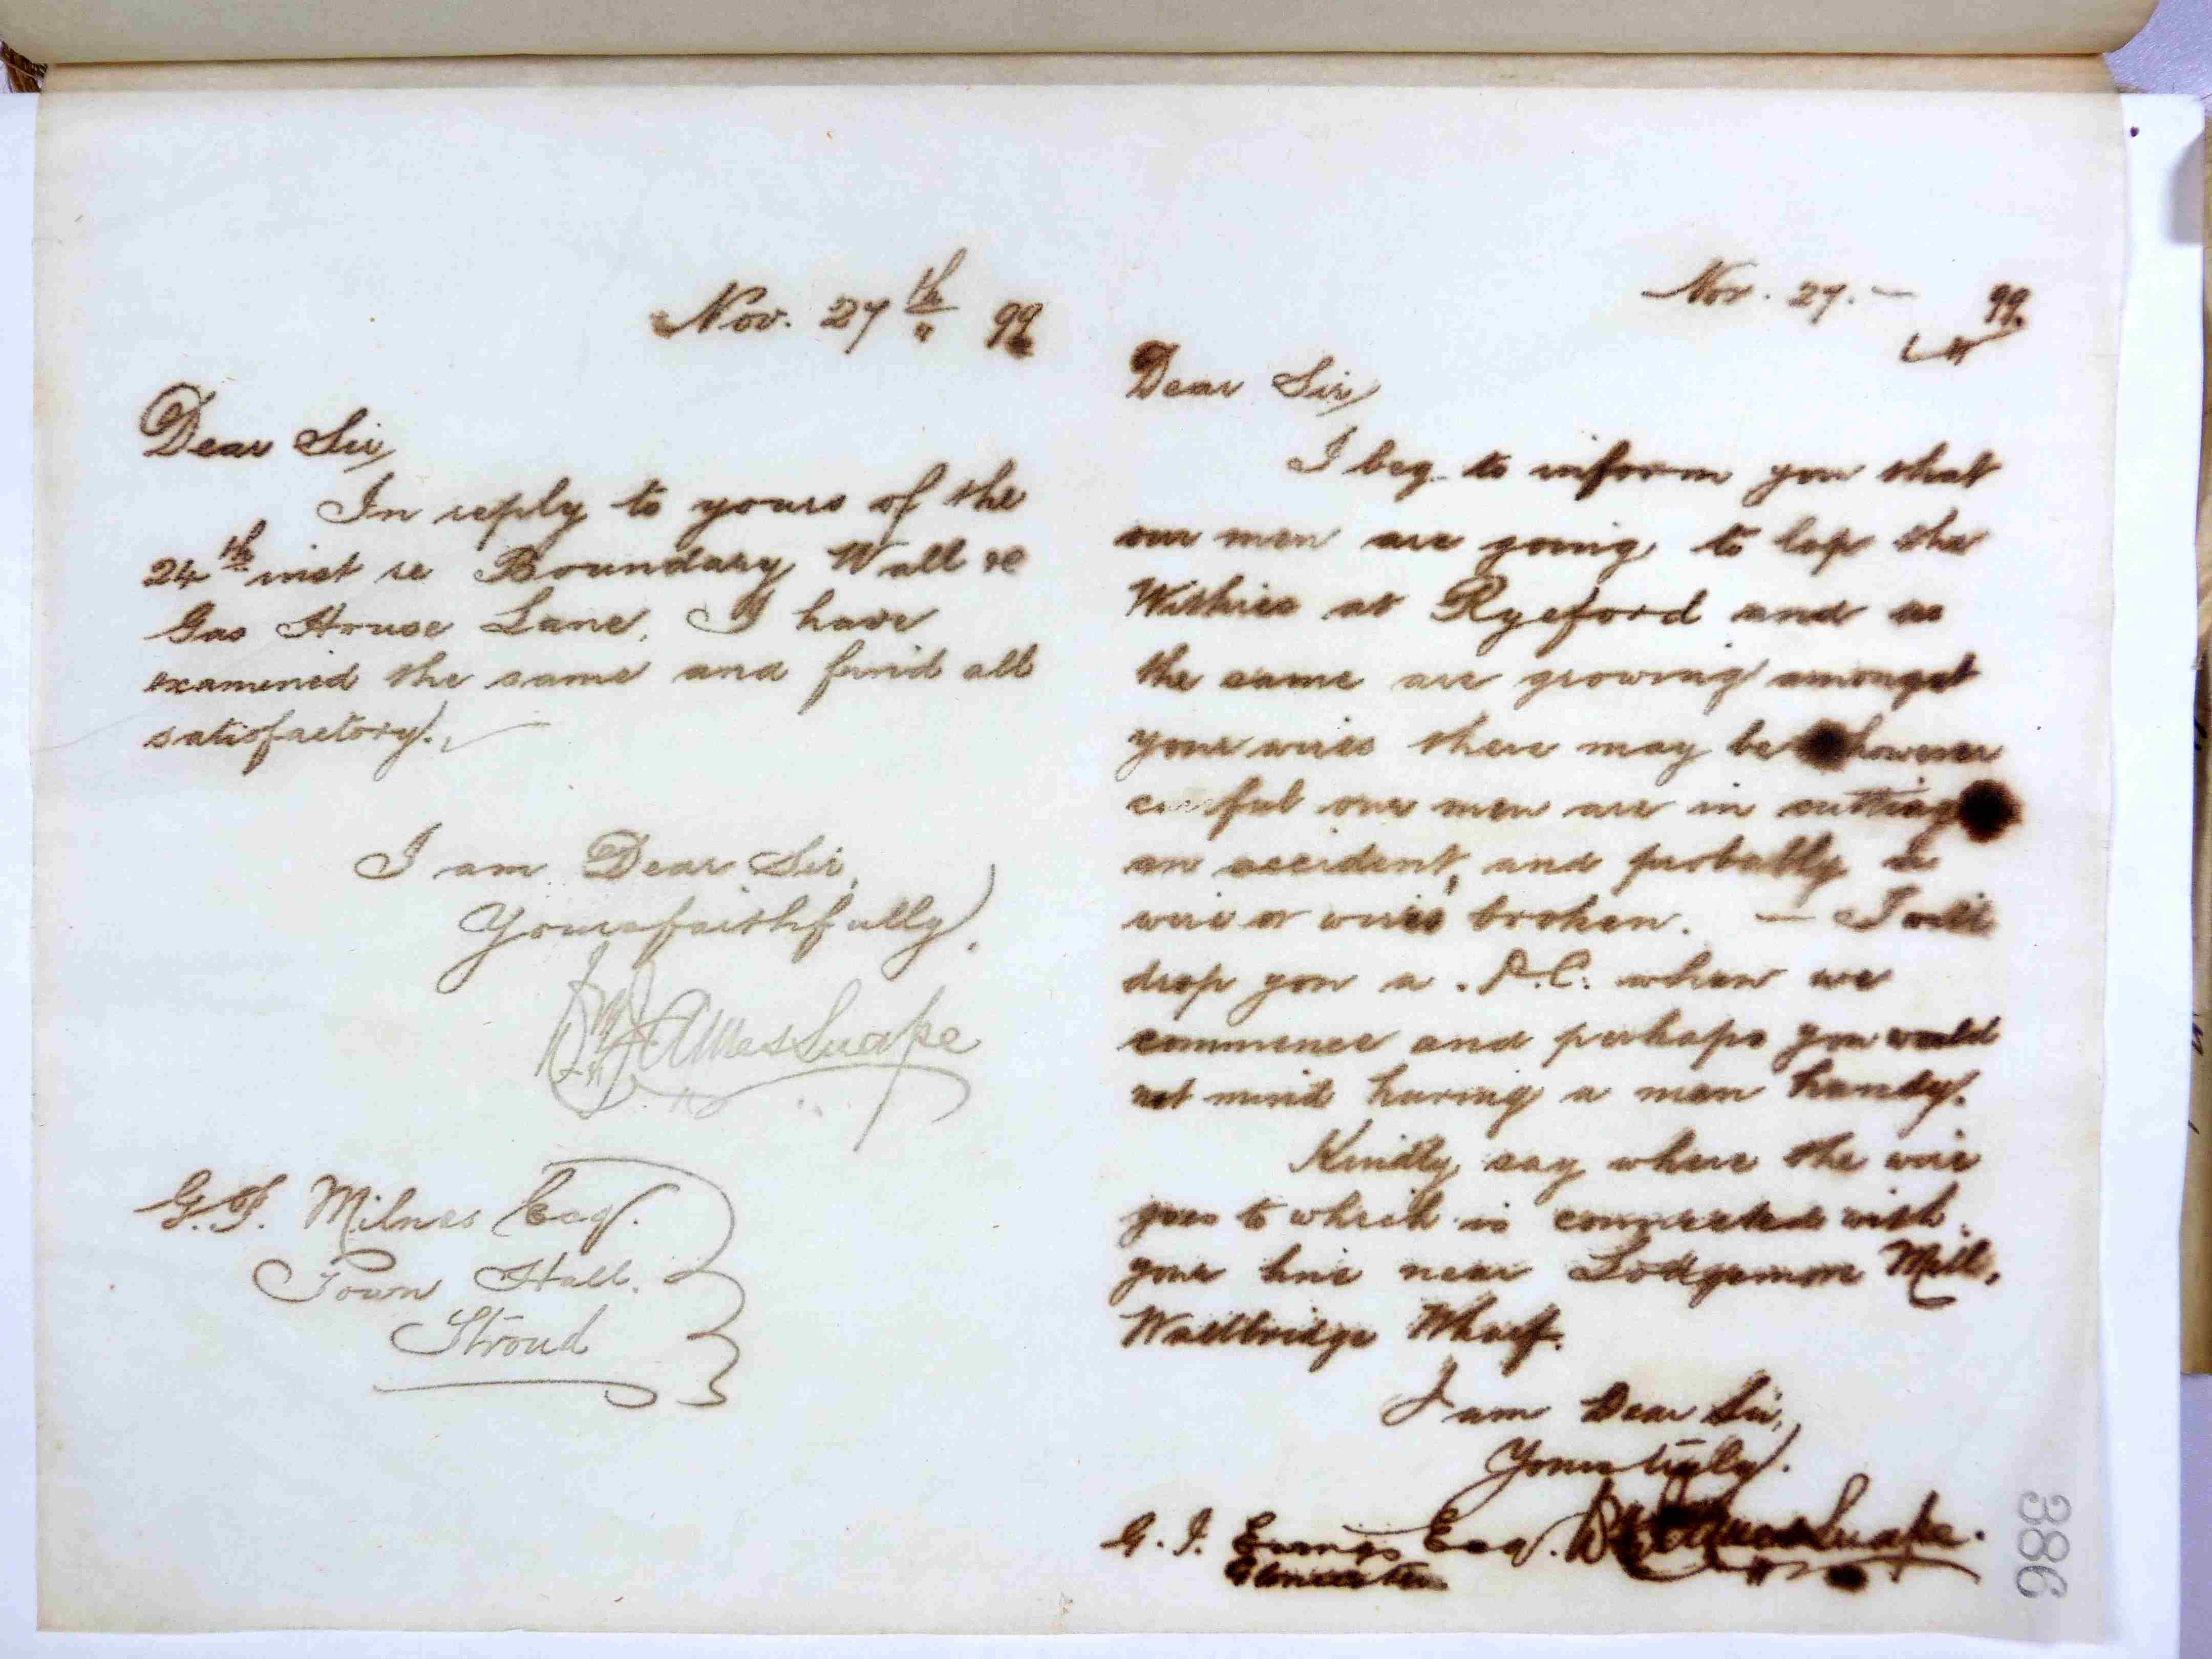 Nov. 27th 99
Dear Sir,
In reply to yours of the
24th inst re Boundary Wall &c
Gas House Lane, I have
examined the same and find all
satisfactory.
I am Dear Sir,
Yours faithfully,
Wm James Snape
G.F. Milnes Esq.
Town Hall.
Stroud
Nov. 27. — 99.
Dear Sir,
I beg to inform you that
our men are going to lop the
Withies at Ryeford and as
the same are growing amongst
your wires there may be however
careful our men are in cutting
an accident, and probably a
wire or wires broken. — I will
drop you a P.C. when we
commence and perhaps you would
not mind having a man handy.
Kindly say where the wire
goes to which is connected with
your line near Lodgemore Mill,
Wallbridge Wharf.
I am Dear Sir,
Yours truly.
G. I. Esq. Wm James Snape.
Gloucester
386